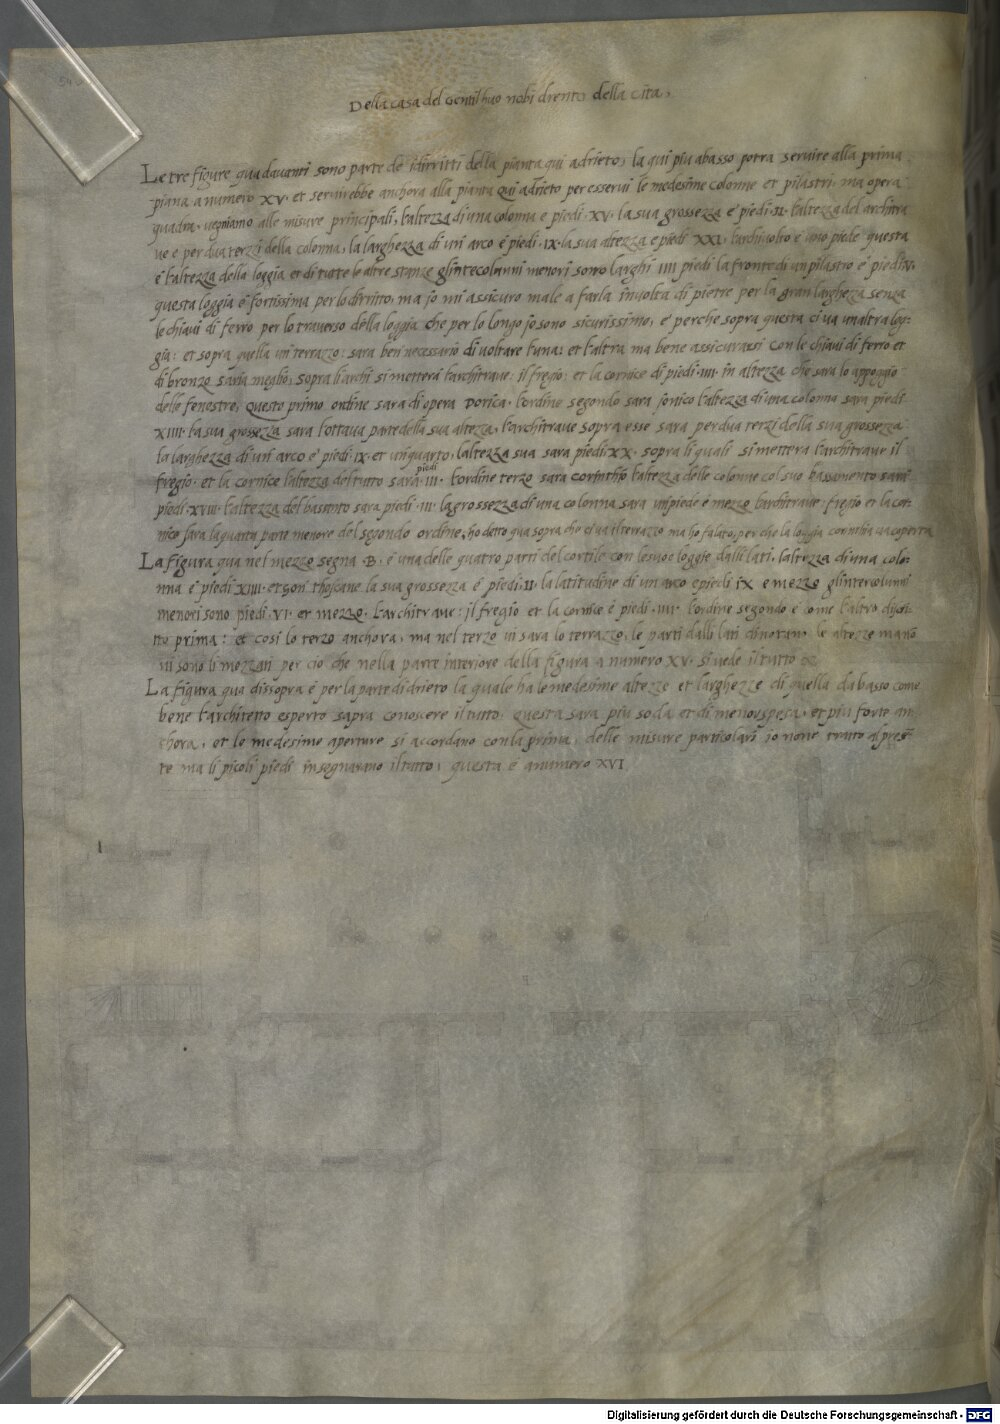 Della casa del Gentilhuo nobi drento della cita,
Le tre figure qua davanti sono parte de idirritti della pianta qui adrieto, la qui piu abasso potra servire alla prima
piana a numero XV. et servirebbe anchora alla pianta qui adrieto per esservi le medesime colonne et pilastri, ma opera
quadra. vegniamo alle misure principali, laltezza di una colonna e piedi .XV. la sua grossezza e piedi .II. laltezza del architra
ve e per dua terzi della colonna, la larghezza di un arco e piedi .IX. la sua altezza e piedi XXI, larchivolto e uno piede questa
e laltezza della loggia et di tutte le altre stanze glintecolunni menori sono larghi IIII piedi la fronte di un pilastro e piedi V.
questa loggia e fortissima per lo dirritto, ma io mi assicuro male a farla in volta di pietre per la gran larghezza senza
le chiavi di ferro per lo traverso della loggia che per lo longo io sono sicurissimo, e perche sopra questa ci va unaltra log:
gia: et sopra quella un terrazzo: sara ben necessario di voltare luna: et laltra ma bene assicurarsi con le chiavi di ferro et
di bronzo saria meglio, sopra li archi si mettera larchitrave: il fregio: et la cornice di piedi .IIII. in altezza che sara lo appoggio
delle fenestre, Questo primo ordine sara di opera Dorica. lordine segondo sara ionico laltezza di una colonna sara piedi
XIIII. la sua grossezza sara lottava parte della sua altezza, larchitrave sopra esse sara per dua terzi della sua grossezza
la larghezza di un arco e piedi .IX. et un quarto, laltezza sua sara piedi XX. sopra li quali si mettera larchitrave il
fregio. et la cornice laltezza del tutto sara piedi .III. lordine terzo sara corinthio laltezza delle colonne col suo bassamento sara
piedi .XVIII. laltezza del bassamento sara piedi .III. la grossezza di una colonna sara un piede e mezzo larchitrave: fregio et la cor:
nice sara la quarta parte menore del segondo ordine, ho detto qua sopra che ci va il terrazzo ma ho falato, per che la loggia corinthia va coperta
La figura qua nel mezzo segna .B. e una delle quatro parti del cortile con le suoe loggie dalli lati, laltezza di una colo:
nna e piedi .XIIII. et son thoscane la sua grossezza e piedi .II. la latitudine di un arco e piedi IX e mezzo glintercolunni
menori sono piedi .VI. et mezzo. larchitrave: il fregio et la cornice e piedi .IIII. lordine segondo e come laltro disot:
to prima: et cosi lo terzo anchora, ma nel terzo vi sara lo terrazzo, le parti dalli lati dinotano le altezze mano
vi sono li mezzati per cio che nella parte interiore della figura a numero XV. si vede il tutto
La figura qua dissopra e per la parte di drieto la quale ha le medesime altezze et larghezze di quella dabasso come
bene larchitetto esperto sapra conoscere il tutto. questa sara piu soda et di menor spesa, et piu forte an
chora, et le medesime aperture si accordano con la prima, delle misure particolari io none tratto al presē
te ma li picoli piedi insegnarano il tutto, questa e a numero XVI
Digitalisierung gefördert durch die Deutsche Forschungsgemeinschaft - DFG